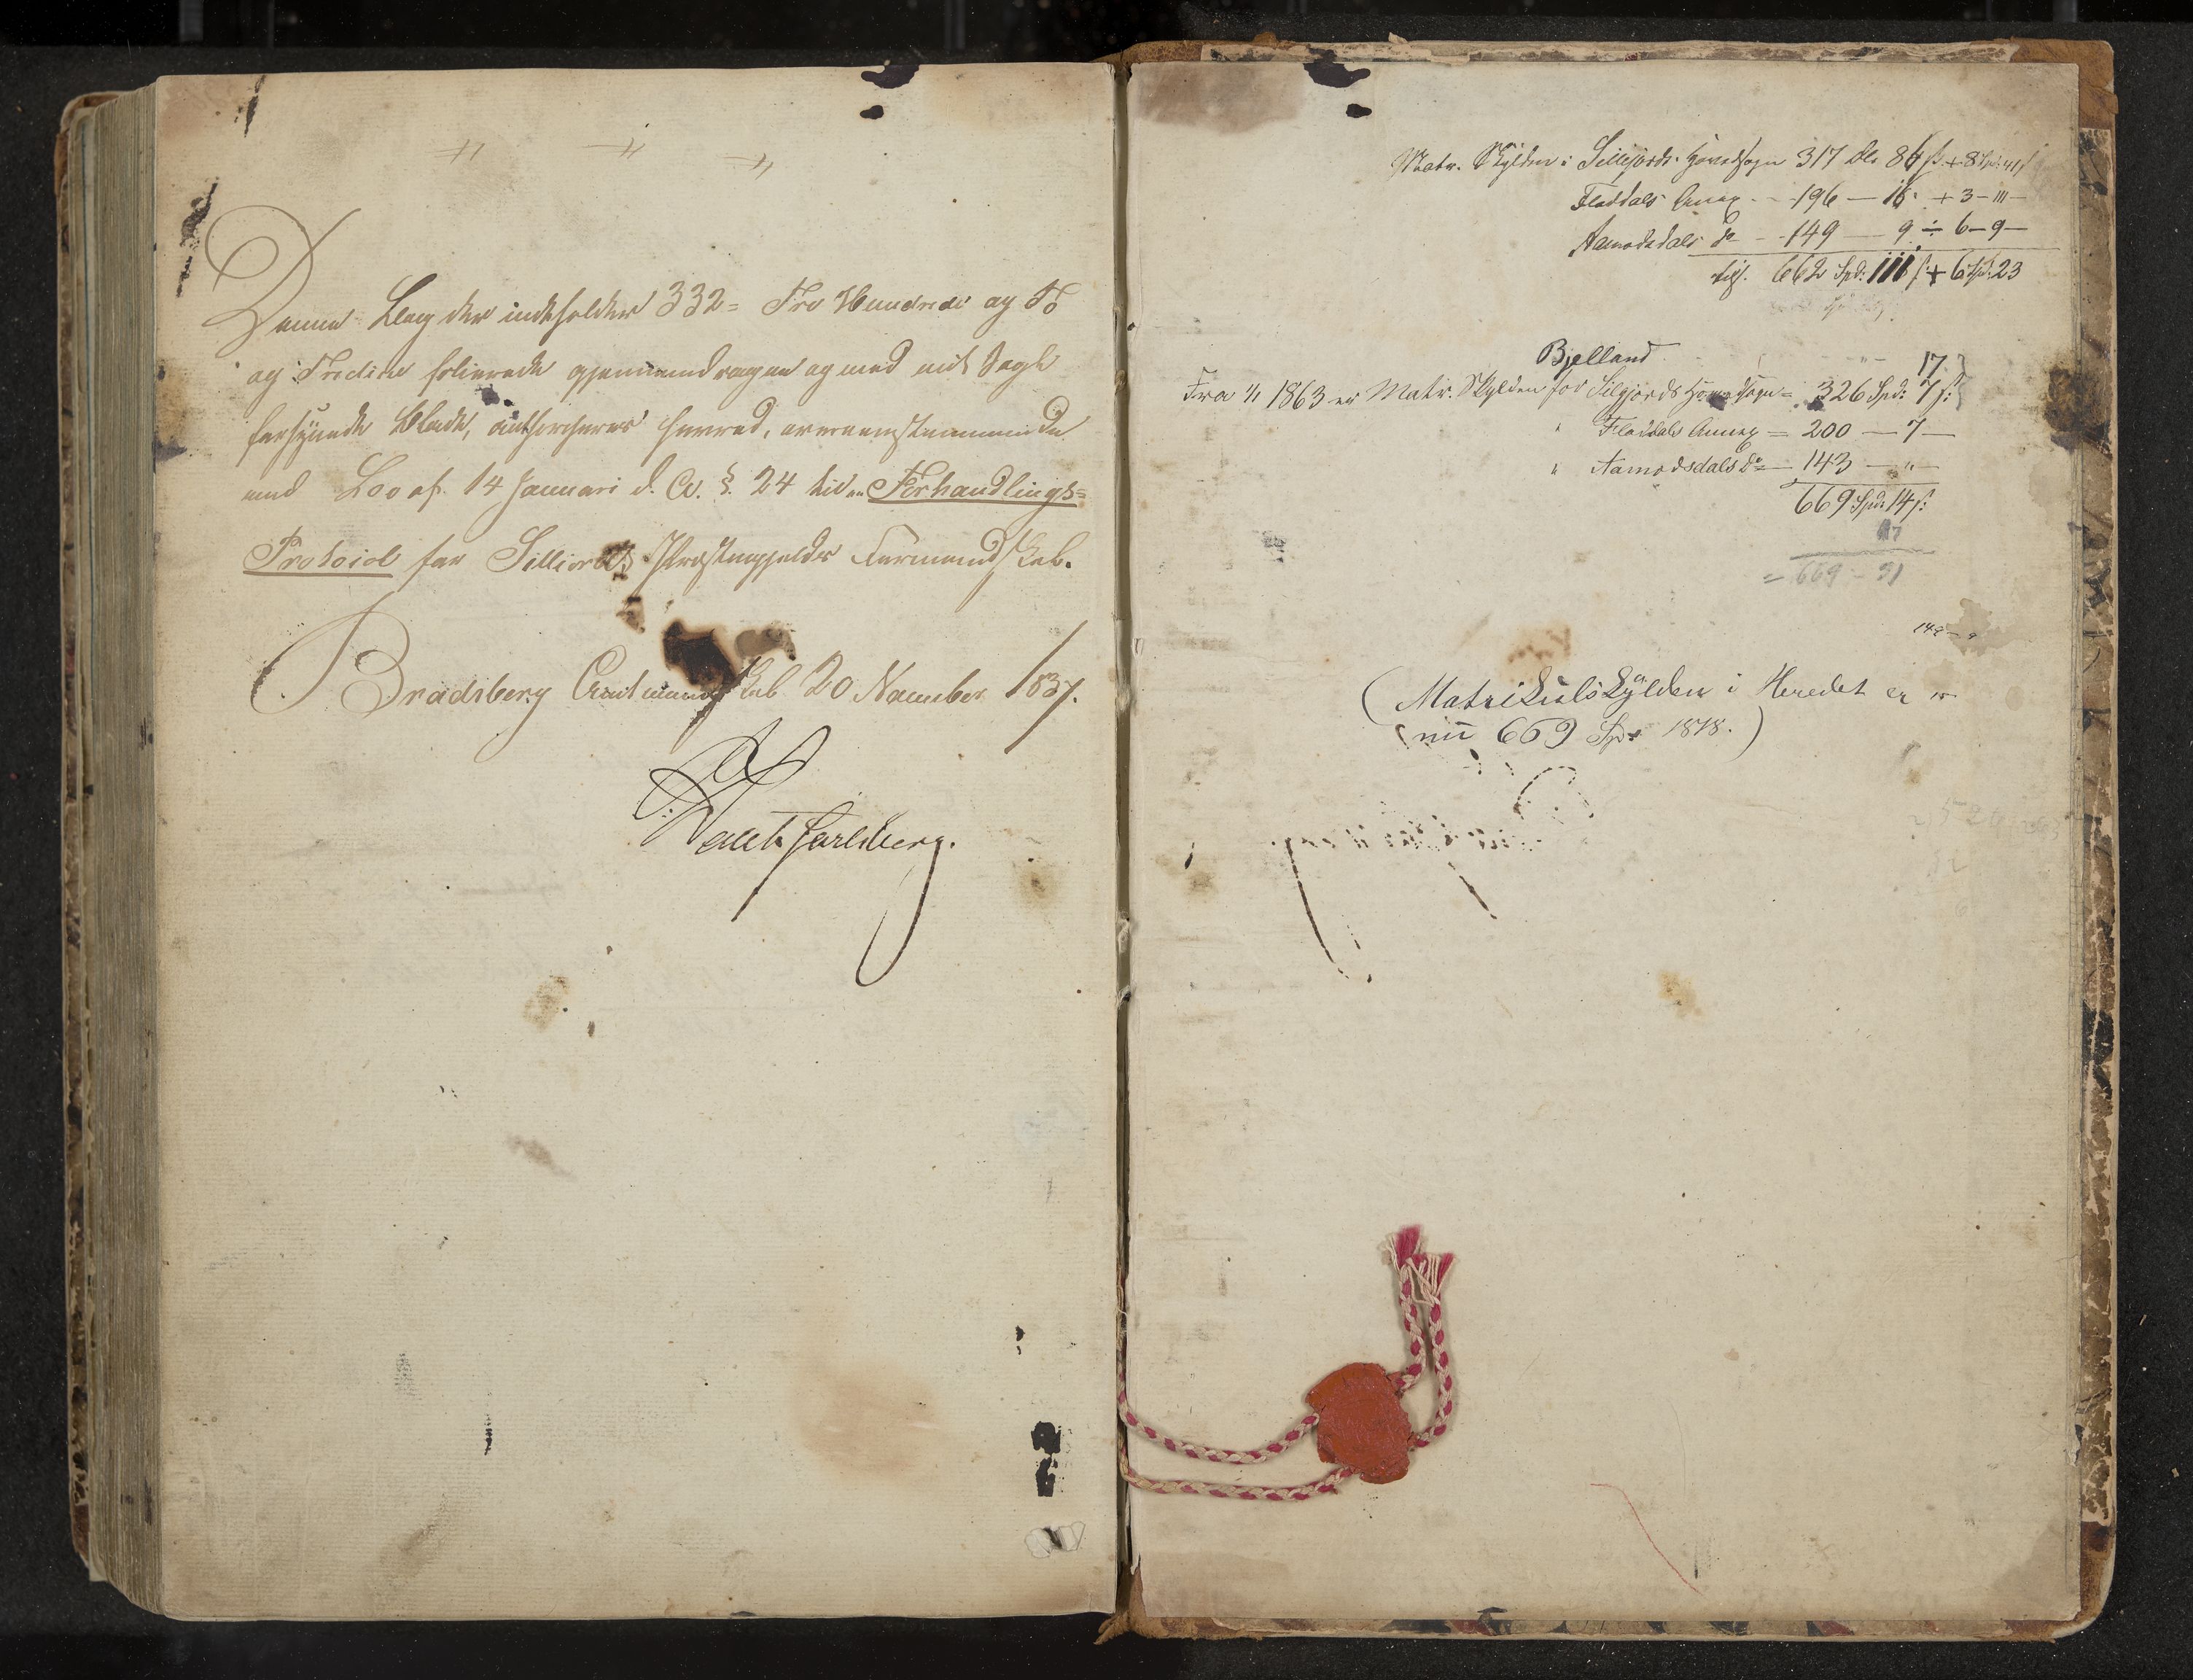 Denne Bog der indeholder 332 = Tre Hundrede og To
og Tredive folierede gjennemdragne og med mit Segl
forsynede Blade, authoriseres herved, overeensstemmende
med Lov af 14 Januari d. A. §. 24 til en Forhandlings=
Protocol for Silliords Præstegjelds Formandskab.
Bradsberg Amtmandskab 20 November 1837.
Løvenskiold
Matr. Skylden i Sillejords Hovedsogn 317 Dlr 86 ß + 8 Spd: 41 ß
Fladdals Annex - - 196 — 16 + 3 - 111 -
Aamodsdals do - - 149 — 9 ÷ 6 - 9 -
tils. 662 Spd: 111 ß + 6 Spd. 23
Bjelland - " - 17
Fra 1/1 1863 er Matr. Skylden for Silgjords Hovedsogn = 326 Spd: 7 ß:
" Fladdals Annex = 200 — 7 —
" Aamodsdals do — 143 — " —
669 Spd: 14 ß:
17
= 669 - 31
149 - 9
(Matrikulskylden i Heredet er
nu 669 Spd 1878.)